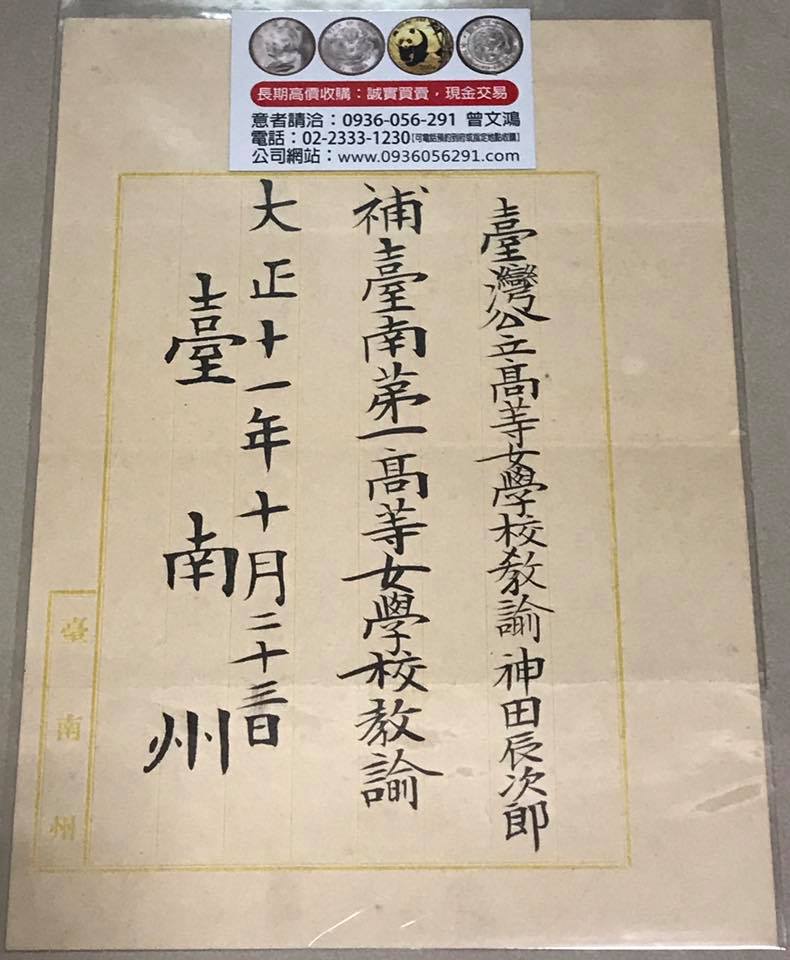 長期高價收購：誠實買賣，現金交易
意者請洽：0936-056-291 曾文鴻
電話：02-2333-1230【可電話預約到府或指定地點收購】
公司網站：www.0936056291.com
臺灣公立高等女學校教諭 神田辰次郎
補臺南第一高等女學校教諭
大正十一年十月二十三日
臺南州
臺南州